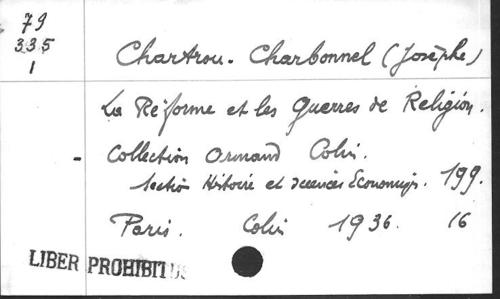 79
335
1
Chartrou-Charbonnel (Josèphe)
La Réforme et les Guerres de Religion.
- Collection Armand Colin.
Section Histoire et sciences Economiqs. 199.
Paris. Colin 1936. 16
LIBER PROHIBITUS